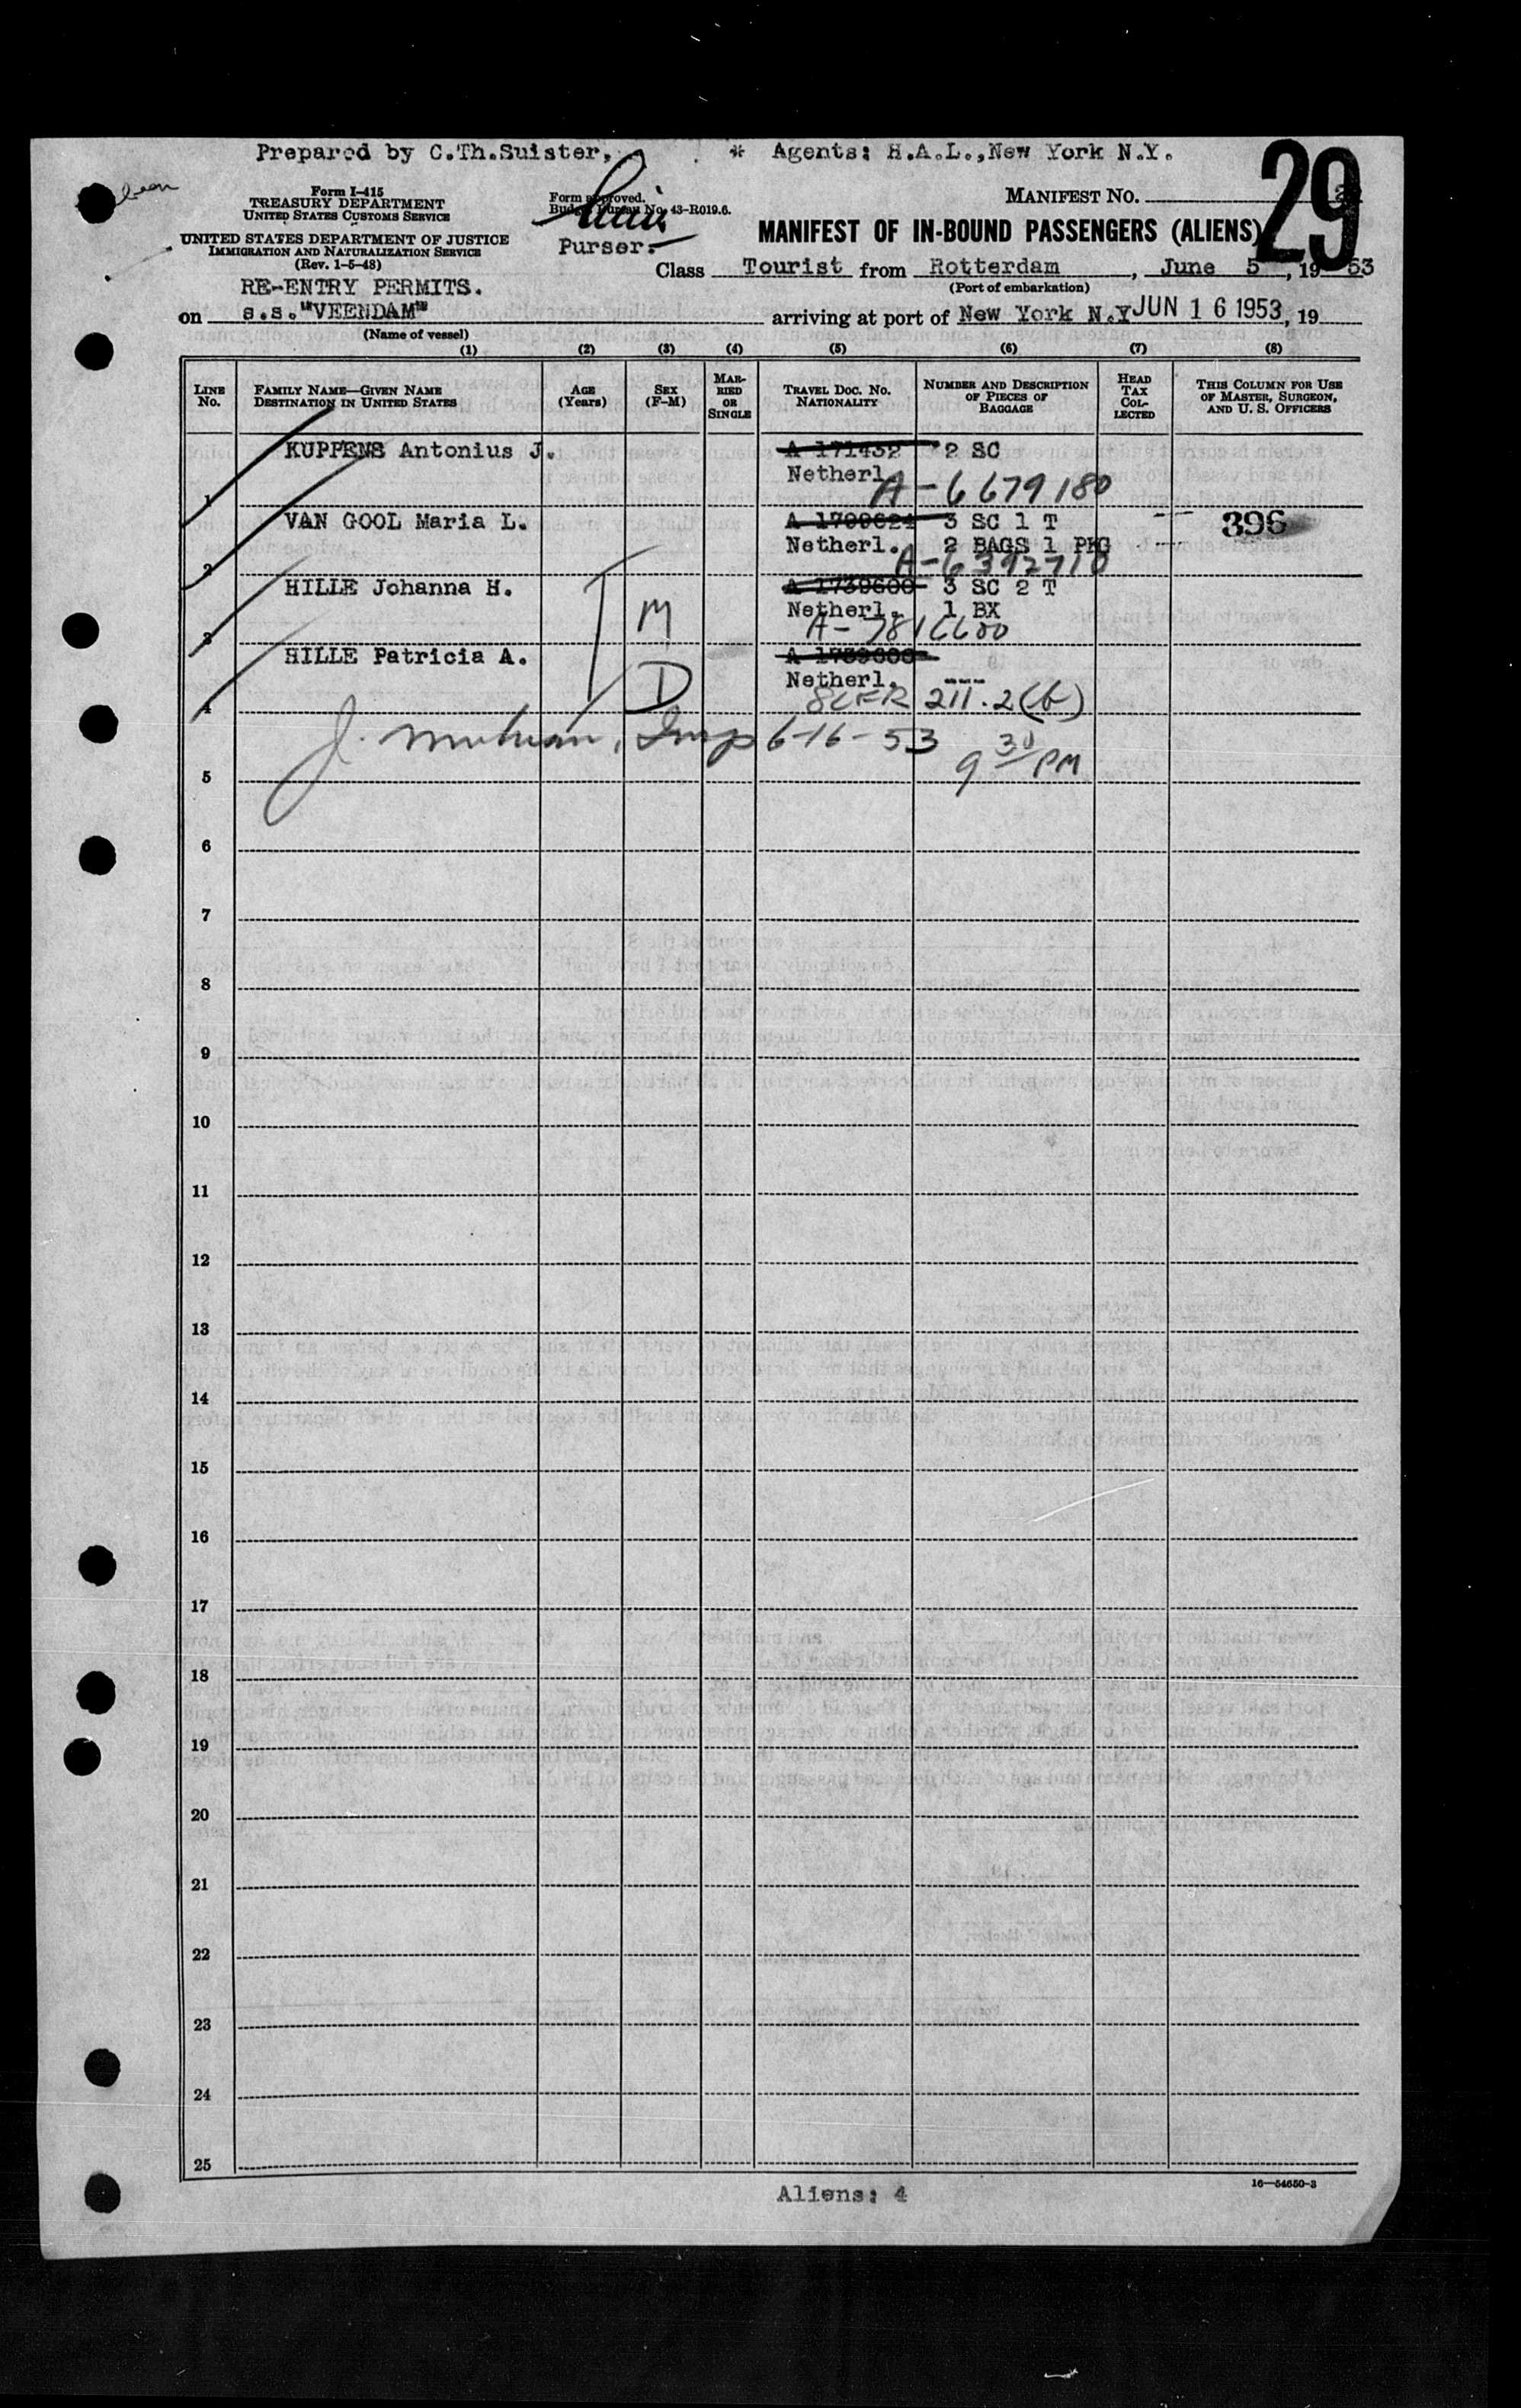 Prepared by C.Th.Suister, * Agents: H.A.L.,New York N.Y.
29
Form I-415
TREASURY DEPARTMENT
UNITED STATES CUSTOMS SERVICE
UNITED STATES DEPARTMENT OF JUSTICE
IMMIGRATION AND NATURALIZATION SERVICE
(Rev. 1-5-48)
Form approved.
Budget Bureau No. 43-R019.6.
Purser.
MANIFEST NO.
MANIFEST OF IN-BOUND PASSENGERS (ALIENS)
Class Tourist from Rotterdam, June 5, 1953
(Port of embarkation)
RE-ENTRY PERMITS.
on s.s."VEENDAM" arriving at port of New York N.Y JUN 16 1953, 19
(Name of vessel)
(1) (2) (3) (4) (5) (6) (7) (8)
LINE No. FAMILY NAME—GIVEN NAME DESTINATION IN UNITED STATES AGE (Years) SEX (F-M) MARRIED OR SINGLE TRAVEL DOC. NO. NATIONALITY NUMBER AND DESCRIPTION OF PIECES OF BAGGAGE HEAD TAX COLLECTED THIS COLUMN FOR USE OF MASTER, SURGEON, AND U. S. OFFICERS
KUPPENS Antonius J. A 171432 2 SC
Netherl.
1 A-6679180
VAN GOOL Maria L. A 1799624 3 SC 1 T 396
Netherl. 2 BAGS 1 PKG
2 A-6392710
HILLE Johanna H. A 1739600 3 SC 2 T
M Netherl. 1 BX
3 A-7816680
HILLE Patricia A. A 1739600
D Netherl. ---
4 8CFR 211.2(b)
J. Insp 6-16-53
9 30 PM
5
6
7
8
9
10
11
12
13
14
15
16
17
18
19
20
21
22
23
24
25
16—54650-3
Aliens: 4